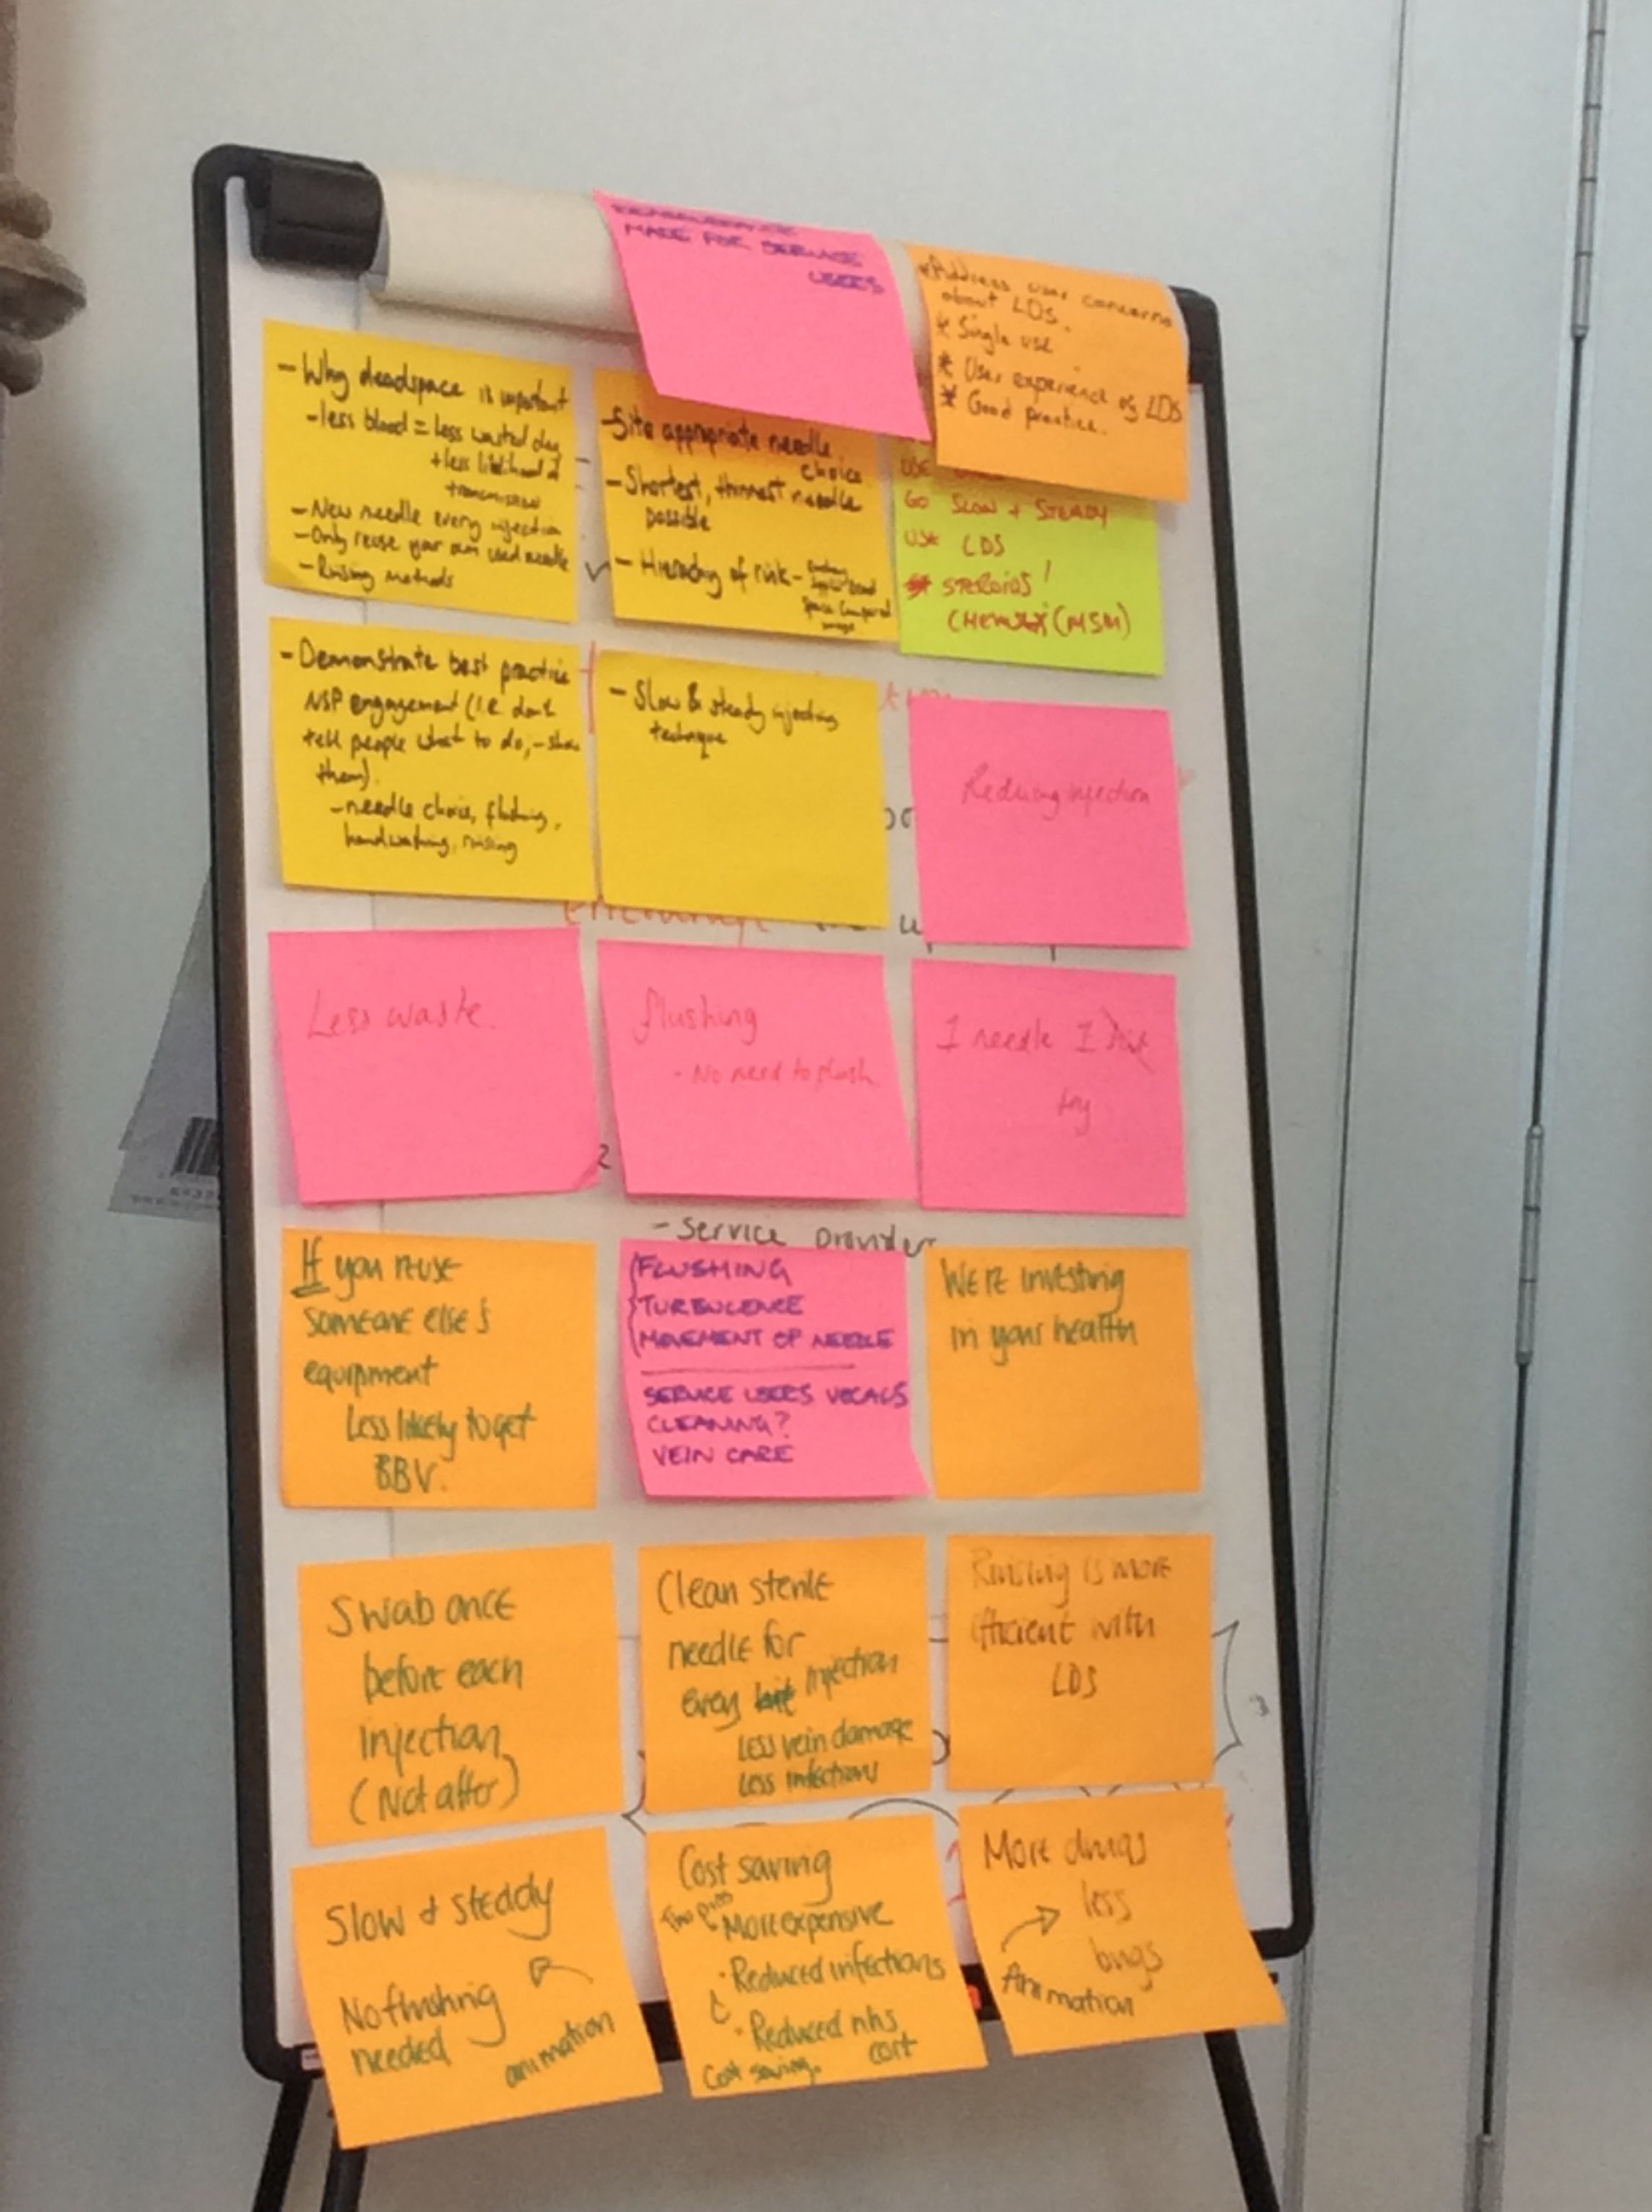 MADE FOR SERVICE
USERS
*Address user concerns
about LDS.
* Single use
* User experience of LDS
* Good practice.
- Why deadspace is important
- less blood = less wasted drug
+ less likelihood of
transmission
- New needle every injection
- Only reuse your own used needle
- Rinsing methods
- Site appropriate needle
choice
- Shortest, thinnest needle
possible
- Hierarchy of risk -
USE
GO SLOW + STEADY
USE LDS
STEROIDS!
(MSM)
- Demonstrate best practice
NSP engagement (i.e. don't
tell people what to do, - show
them).
- needle choice, flushing,
handwashing, rinsing
- Slow & steady injecting
technique
Reducing infection
Less waste.
flushing
- No need to flush
1 needle 1
try
- Service provider
If you reuse
someone else's
equipment
Less likely to get
BBV.
FLUSHING
TURBULENCE
MOVEMENT OF NEEDLE
SERVICE USERS VOCALS
CLEANING?
VEIN CARE
We're investing
in your health
Swab once
before each
injection
(Not after)
Clean sterile
needle for
every injection
Less vein damage
Less infections
Rinsing is more
efficient with
LDS
Slow & steady
No flushing
needed
animation
Cost saving
More expensive
· Reduced infections
· Reduced nhs
cost
Cost saving.
More drugs
less
bugs
Animation